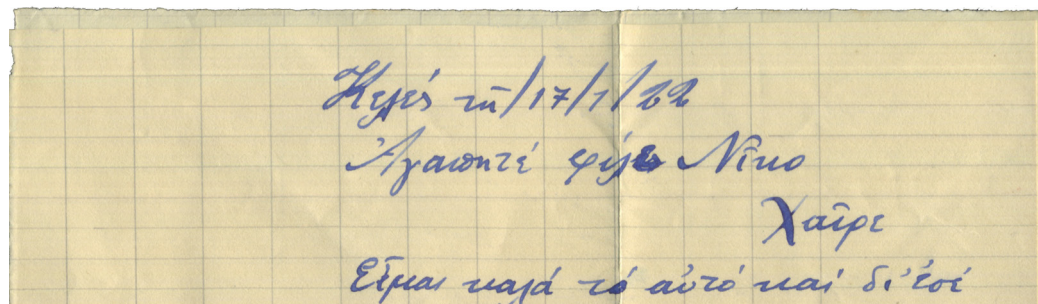 Κελές τῇ/17/1/22
Ἀγαπητέ φίλε Νῖκο
Χαῖρε
Εἶμαι καλά τό αὐτό καί δι' ἐσέ